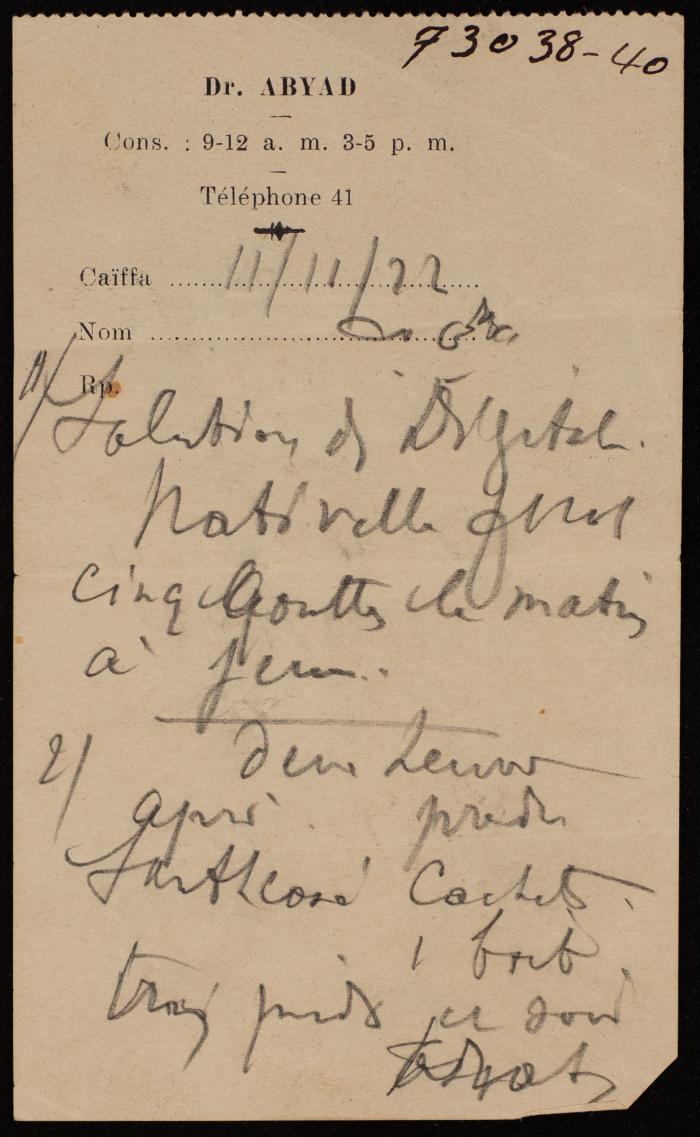 73038-40
Dr. ABYAD
Cons. : 9-12 a. m. 3-5 p. m.
Téléphone 41
Caïffa 11/11/22
Nom
Rp.
1/ Solution de Digital.
Nativelle
cinq Gouttes le matin
à jeun.
2/ deux heures
après prendre
Santheose Cachets.
1 boit.
trois par le soir